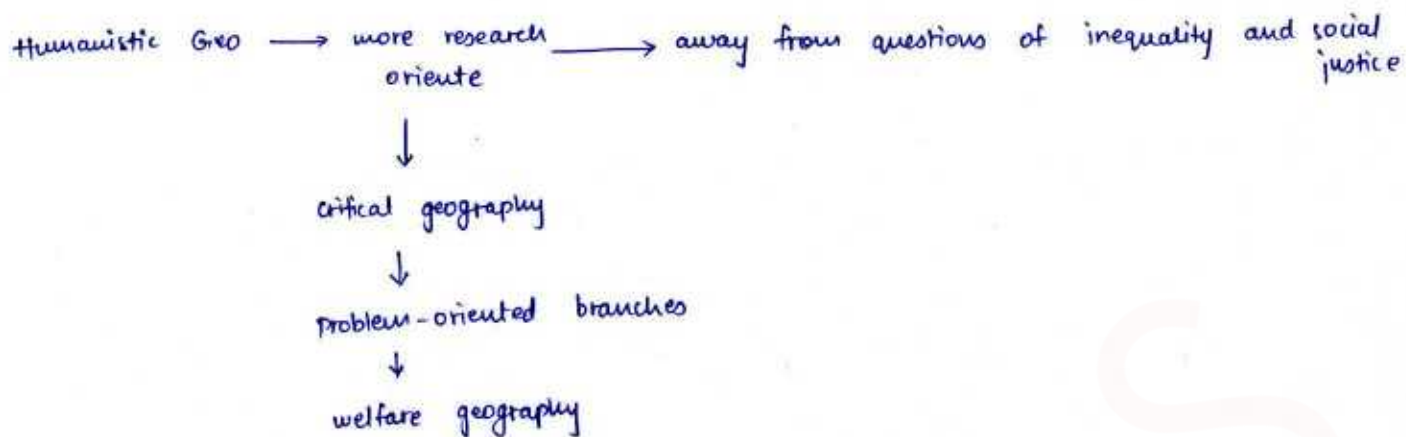 Humanistic Geo → more research → away from questions of inequality and social
oriente justice
↓
critical geography
↓
problem-oriented branches
↓
welfare geography